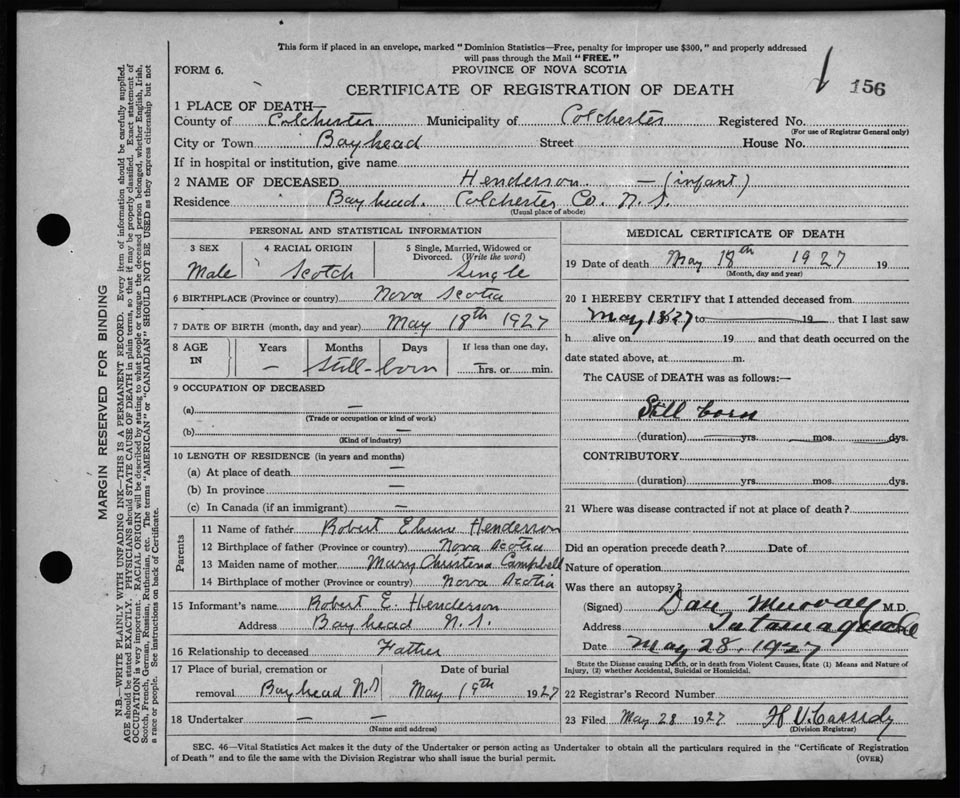 This form if placed in an envelope, marked "Dominion Statistics—Free, penalty for improper use $300," and properly addressed
will pass through the Mail "FREE."
FORM 6.
PROVINCE OF NOVA SCOTIA
156
CERTIFICATE OF REGISTRATION OF DEATH
1 PLACE OF DEATH—
County of Colchester Municipality of Colchester Registered No.
(For use of Registrar General only)
City or Town Bayhead Street House No.
If in hospital or institution, give name
2 NAME OF DECEASED Henderson — (infant)
Residence Bayhead. Colchester Co. N.S.
(Usual place of abode)
PERSONAL AND STATISTICAL INFORMATION
3 SEX 4 RACIAL ORIGIN 5 Single, Married, Widowed or
Divorced. (Write the word)
Male Scotch Single
6 BIRTHPLACE (Province or country) Nova Scotia
7 DATE OF BIRTH (month, day and year) May 18th 1927
8 AGE Years Months Days If less than one day,
IN — Still-born hrs. or min.
9 OCCUPATION OF DECEASED
(a) —
(Trade or occupation or kind of work)
(b) —
(Kind of industry)
10 LENGTH OF RESIDENCE (in years and months)
(a) At place of death —
(b) In province —
(c) In Canada (if an immigrant) —
Parents
11 Name of father Robert Henderson
12 Birthplace of father (Province or country) Nova Scotia
13 Maiden name of mother Mary Christena Campbell
14 Birthplace of mother (Province or country) Nova Scotia
15 Informant's name Robert E. Henderson
Address Bayhead N.S.
16 Relationship to deceased Father
17 Place of burial, cremation or Date of burial
removal Bayhead N.S May 19th 1927
18 Undertaker — —
(Name and address)
MEDICAL CERTIFICATE OF DEATH
19 Date of death May 18th 1927 19
(Month, day and year)
20 I HEREBY CERTIFY that I attended deceased from
May 18/27 to 19 that I last saw
h alive on 19 and that death occurred on the
date stated above, at m.
The CAUSE of DEATH was as follows:—
Still born
(duration) yrs. mos. dys.
CONTRIBUTORY
(duration) yrs. mos. dys.
21 Where was disease contracted if not at place of death?
Did an operation precede death? Date of
Nature of operation
Was there an autopsy?
(Signed) Dan Murray M.D.
Address Tatamagouche
Date May 28, 1927
State the Disease causing Death, or in death from Violent Causes, state (1) Means and Nature of
Injury, (2) whether Accidental, Suicidal or Homicidal.
22 Registrar's Record Number
23 Filed May 28 1927 H V. Cassidy
(Division Registrar)
SEC. 46—Vital Statistics Act makes it the duty of the Undertaker or person acting as Undertaker to obtain all the particulars required in the "Certificate of Registration
of Death" and to file the same with the Division Registrar who shall issue the burial permit.
(OVER)
MARGIN RESERVED FOR BINDING
N.B.—WRITE PLAINLY WITH UNFADING INK—THIS IS A PERMANENT RECORD. Every item of information should be carefully supplied.
AGE should be stated EXACTLY. PHYSICIANS should STATE CAUSE OF DEATH in plain terms, so that it may be properly classified. Exact statement of
OCCUPATION is very important. RACIAL ORIGIN will be described by stating to what people or tongue the deceased person belonged, whether English, Irish,
Scotch, French, German, Russian, Ruthenian, etc. The terms "AMERICAN" or "CANADIAN" SHOULD NOT BE USED as they express citizenship but not
a race or people. See instructions on back of Certificate.